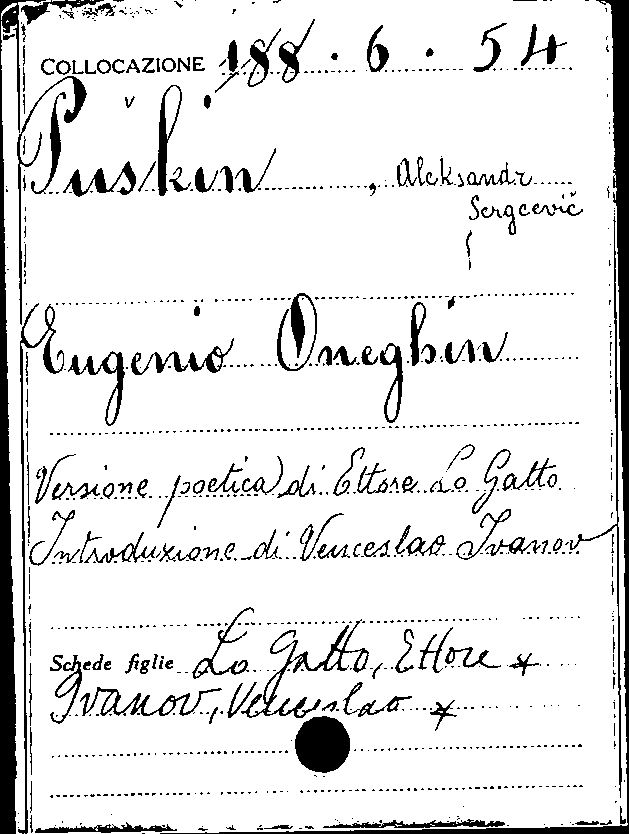 COLLOCAZIONE 188 . 6 . 54
Puškin , Aleksandr
Sergeevič
Eugenio Oneghin
Versione poetica di Ettore Lo Gatto
Introduzione di Venceslao Ivanov
Schede figlie Lo Gatto, Ettore *
Ivanov, Venceslao *